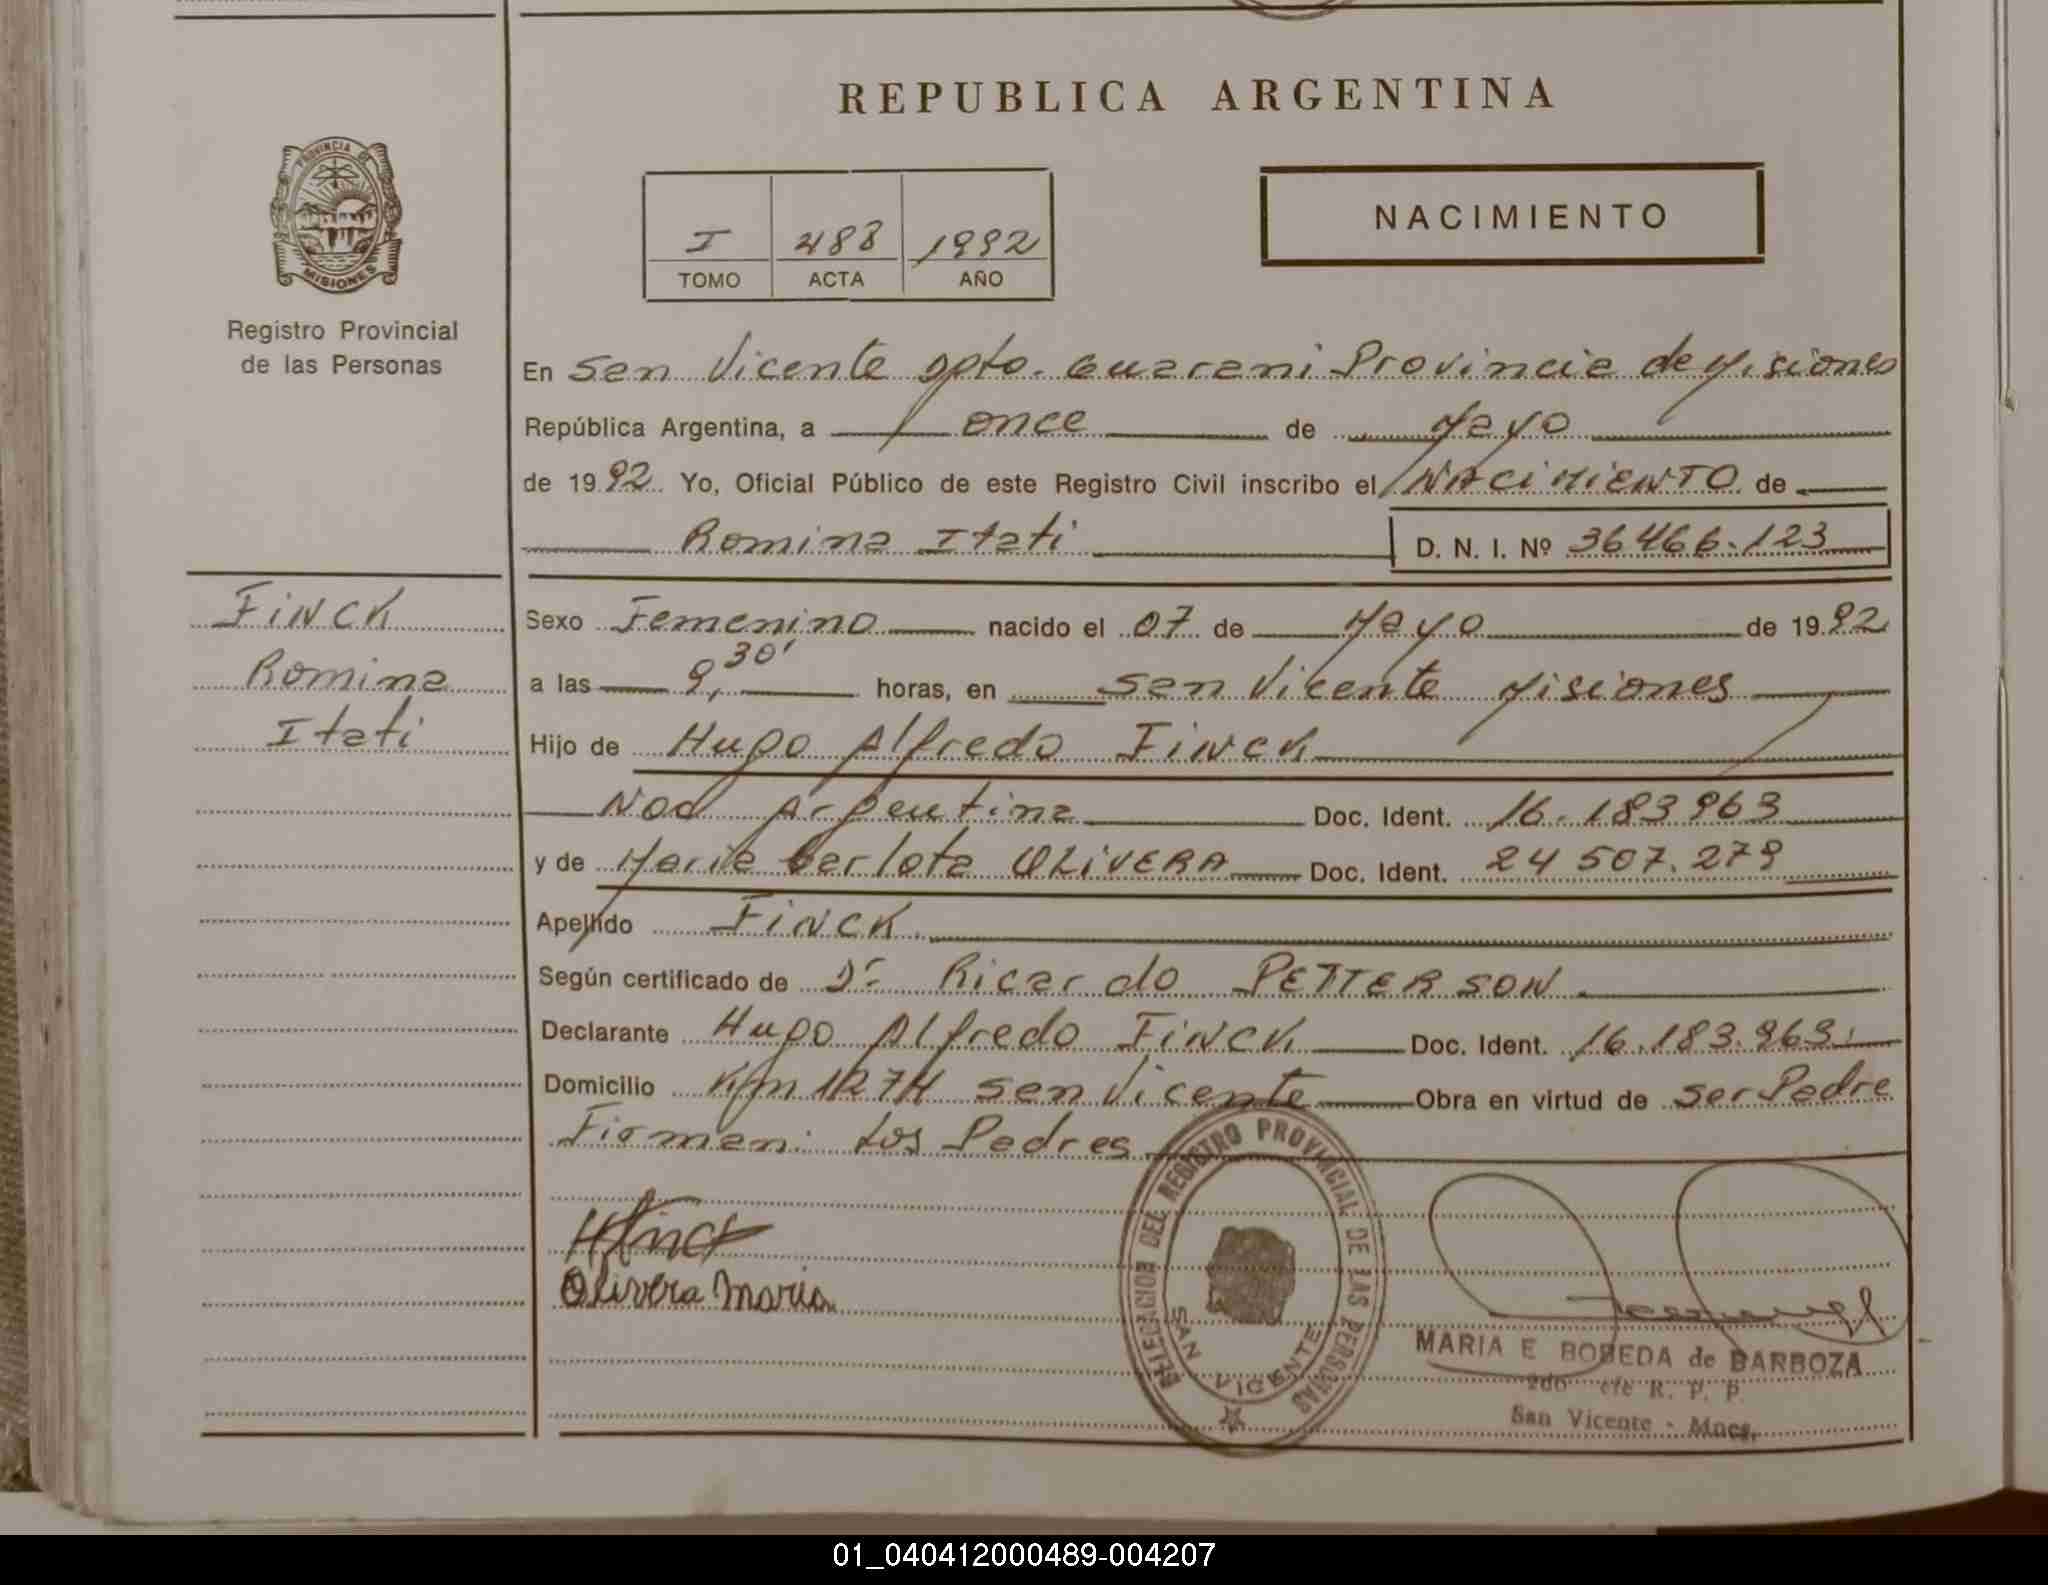 REPUBLICA ARGENTINA
PROVINCIA DE
MISIONES
Registro Provincial
de las Personas
I 488 1992
TOMO ACTA AÑO
NACIMIENTO
En San Vicente Dpto. Guarani Provincia de Misiones
República Argentina, a once de Mayo
de 1992 Yo, Oficial Público de este Registro Civil inscribo el NACIMIENTO de
Romina Itati D. N. I. Nº 36466.123
FINCK
Romina
Itati
Sexo Femenino nacido el 07 de Mayo de 1992
a las 9,30' horas, en San Vicente Misiones
Hijo de Hugo Alfredo FINCK
Nac Argentina Doc. Ident. 16.183963
y de Maria Carlota OLIVERA Doc. Ident. 24 507.279
Apellido FINCK
Según certificado de Dr Ricardo PETTERSON.
Declarante Hugo Alfredo FINCK Doc. Ident. 16.183.963
Domicilio Km 1274 San Vicente Obra en virtud de ser Padre
Firman: Los Padres
HFinck
Olivera Maria
DELEGACION DEL REGISTRO PROVINCIAL DE LAS PERSONAS
SAN VICENTE
MARIA E BOBEDA de BARBOZA
2do R. P. P.
San Vicente - Mnes.
01_040412000489-004207